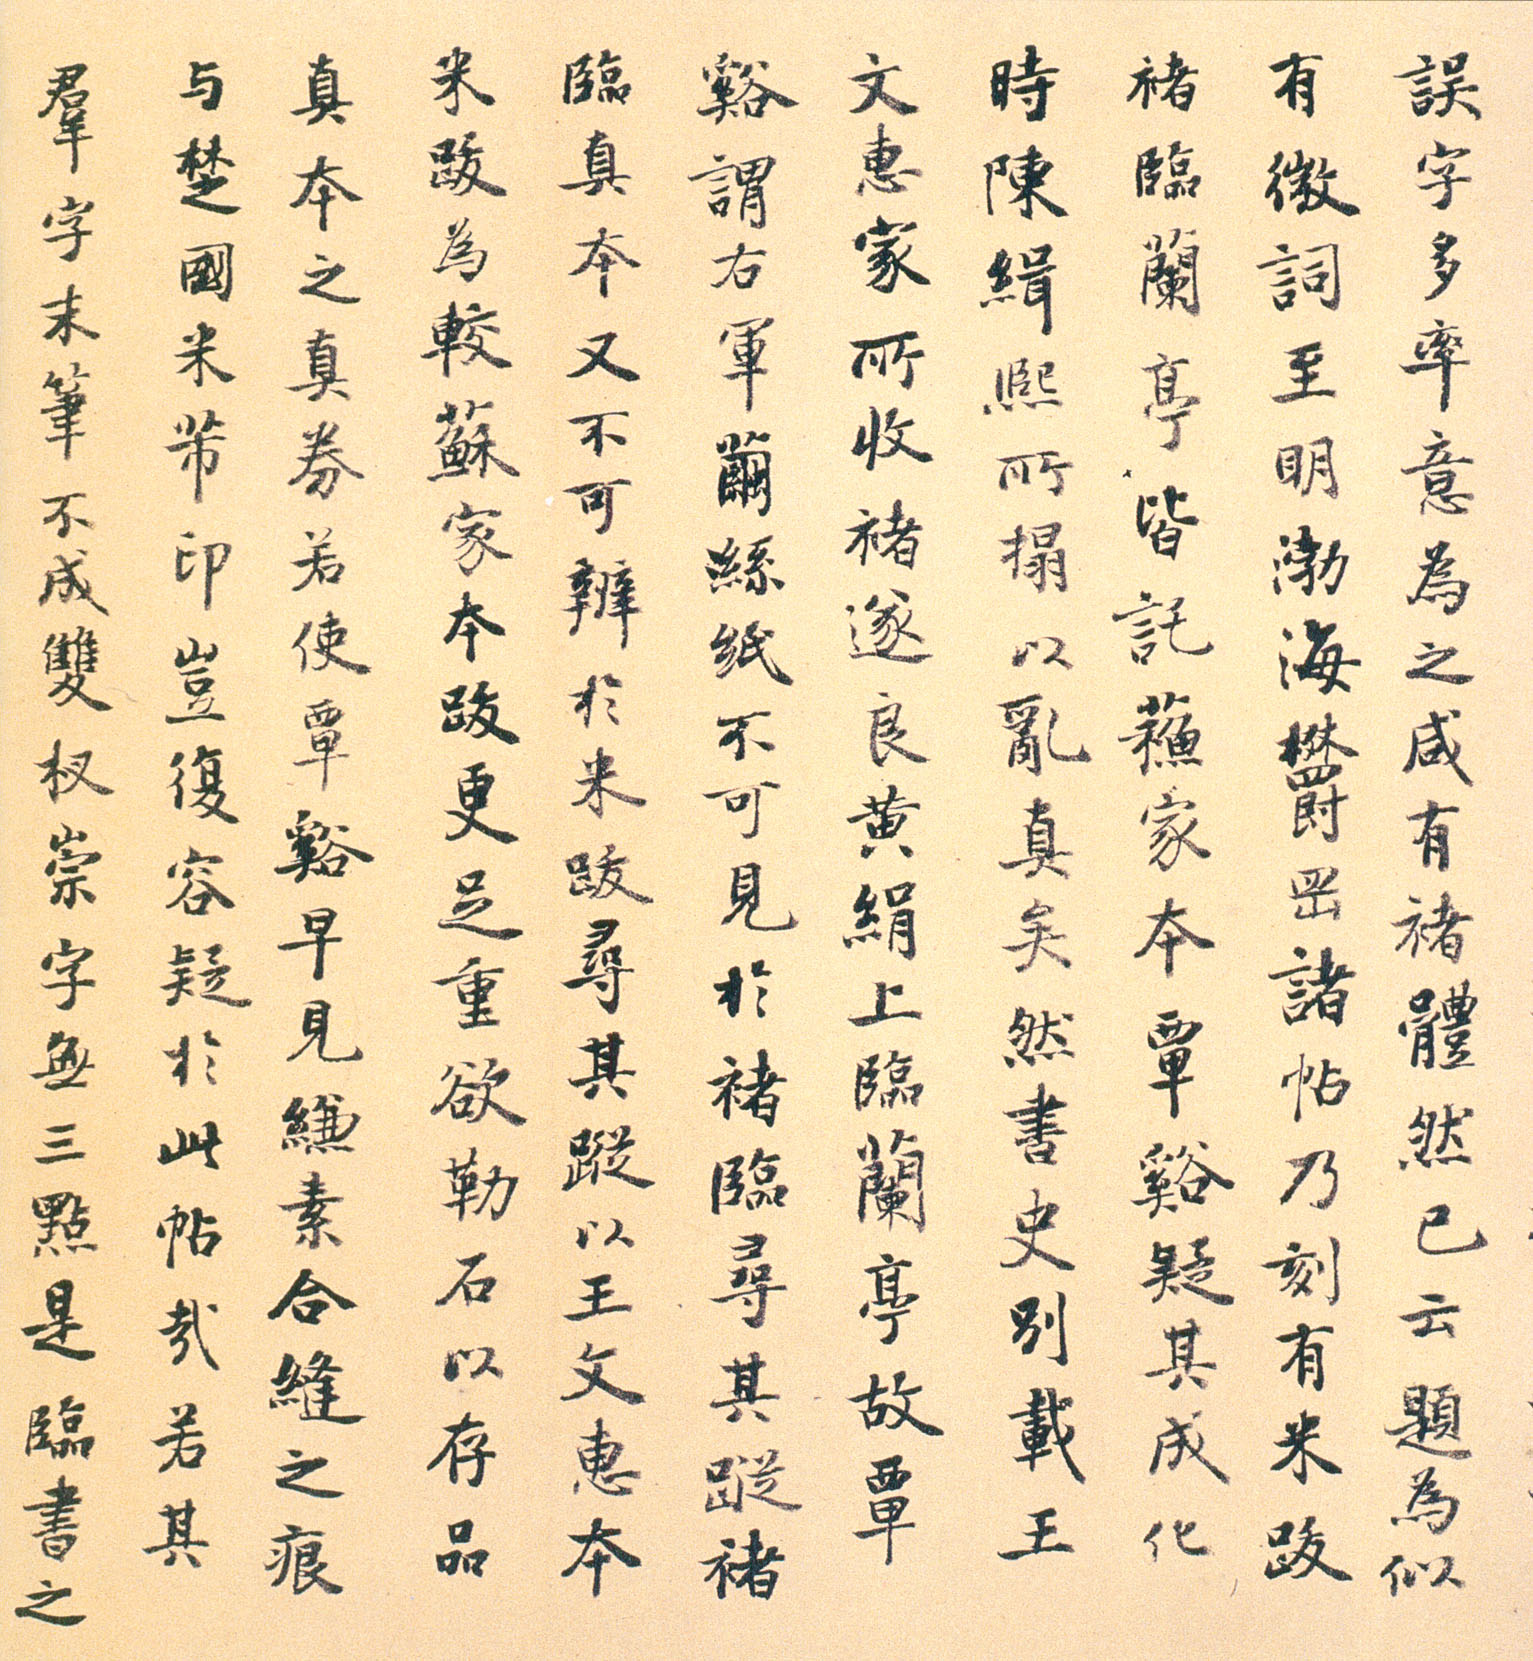 誤字多率意為之咸有褚體然已云題為似
有微詞至明渤海欎岡諸帖乃刻有米跋
褚臨蘭亭皆託蘓家本覃谿疑其成化
時陳緝熙所搨以亂真矣然書史別載王
文惠家所收褚遂良黄絹上臨蘭亭故覃
谿謂右軍繭絲紙不可見於褚臨尋其蹤褚
臨真本又不可辦於米跋尋其蹤以王文惠本
米跋為較蘇家本跋更足重欲勒石以存品
真本之真劵若使覃谿早見縑素合縫之痕
与楚國米芾印豈復容疑於此帖哉若其
羣字末筆不成雙杈崇字無三點是臨書之